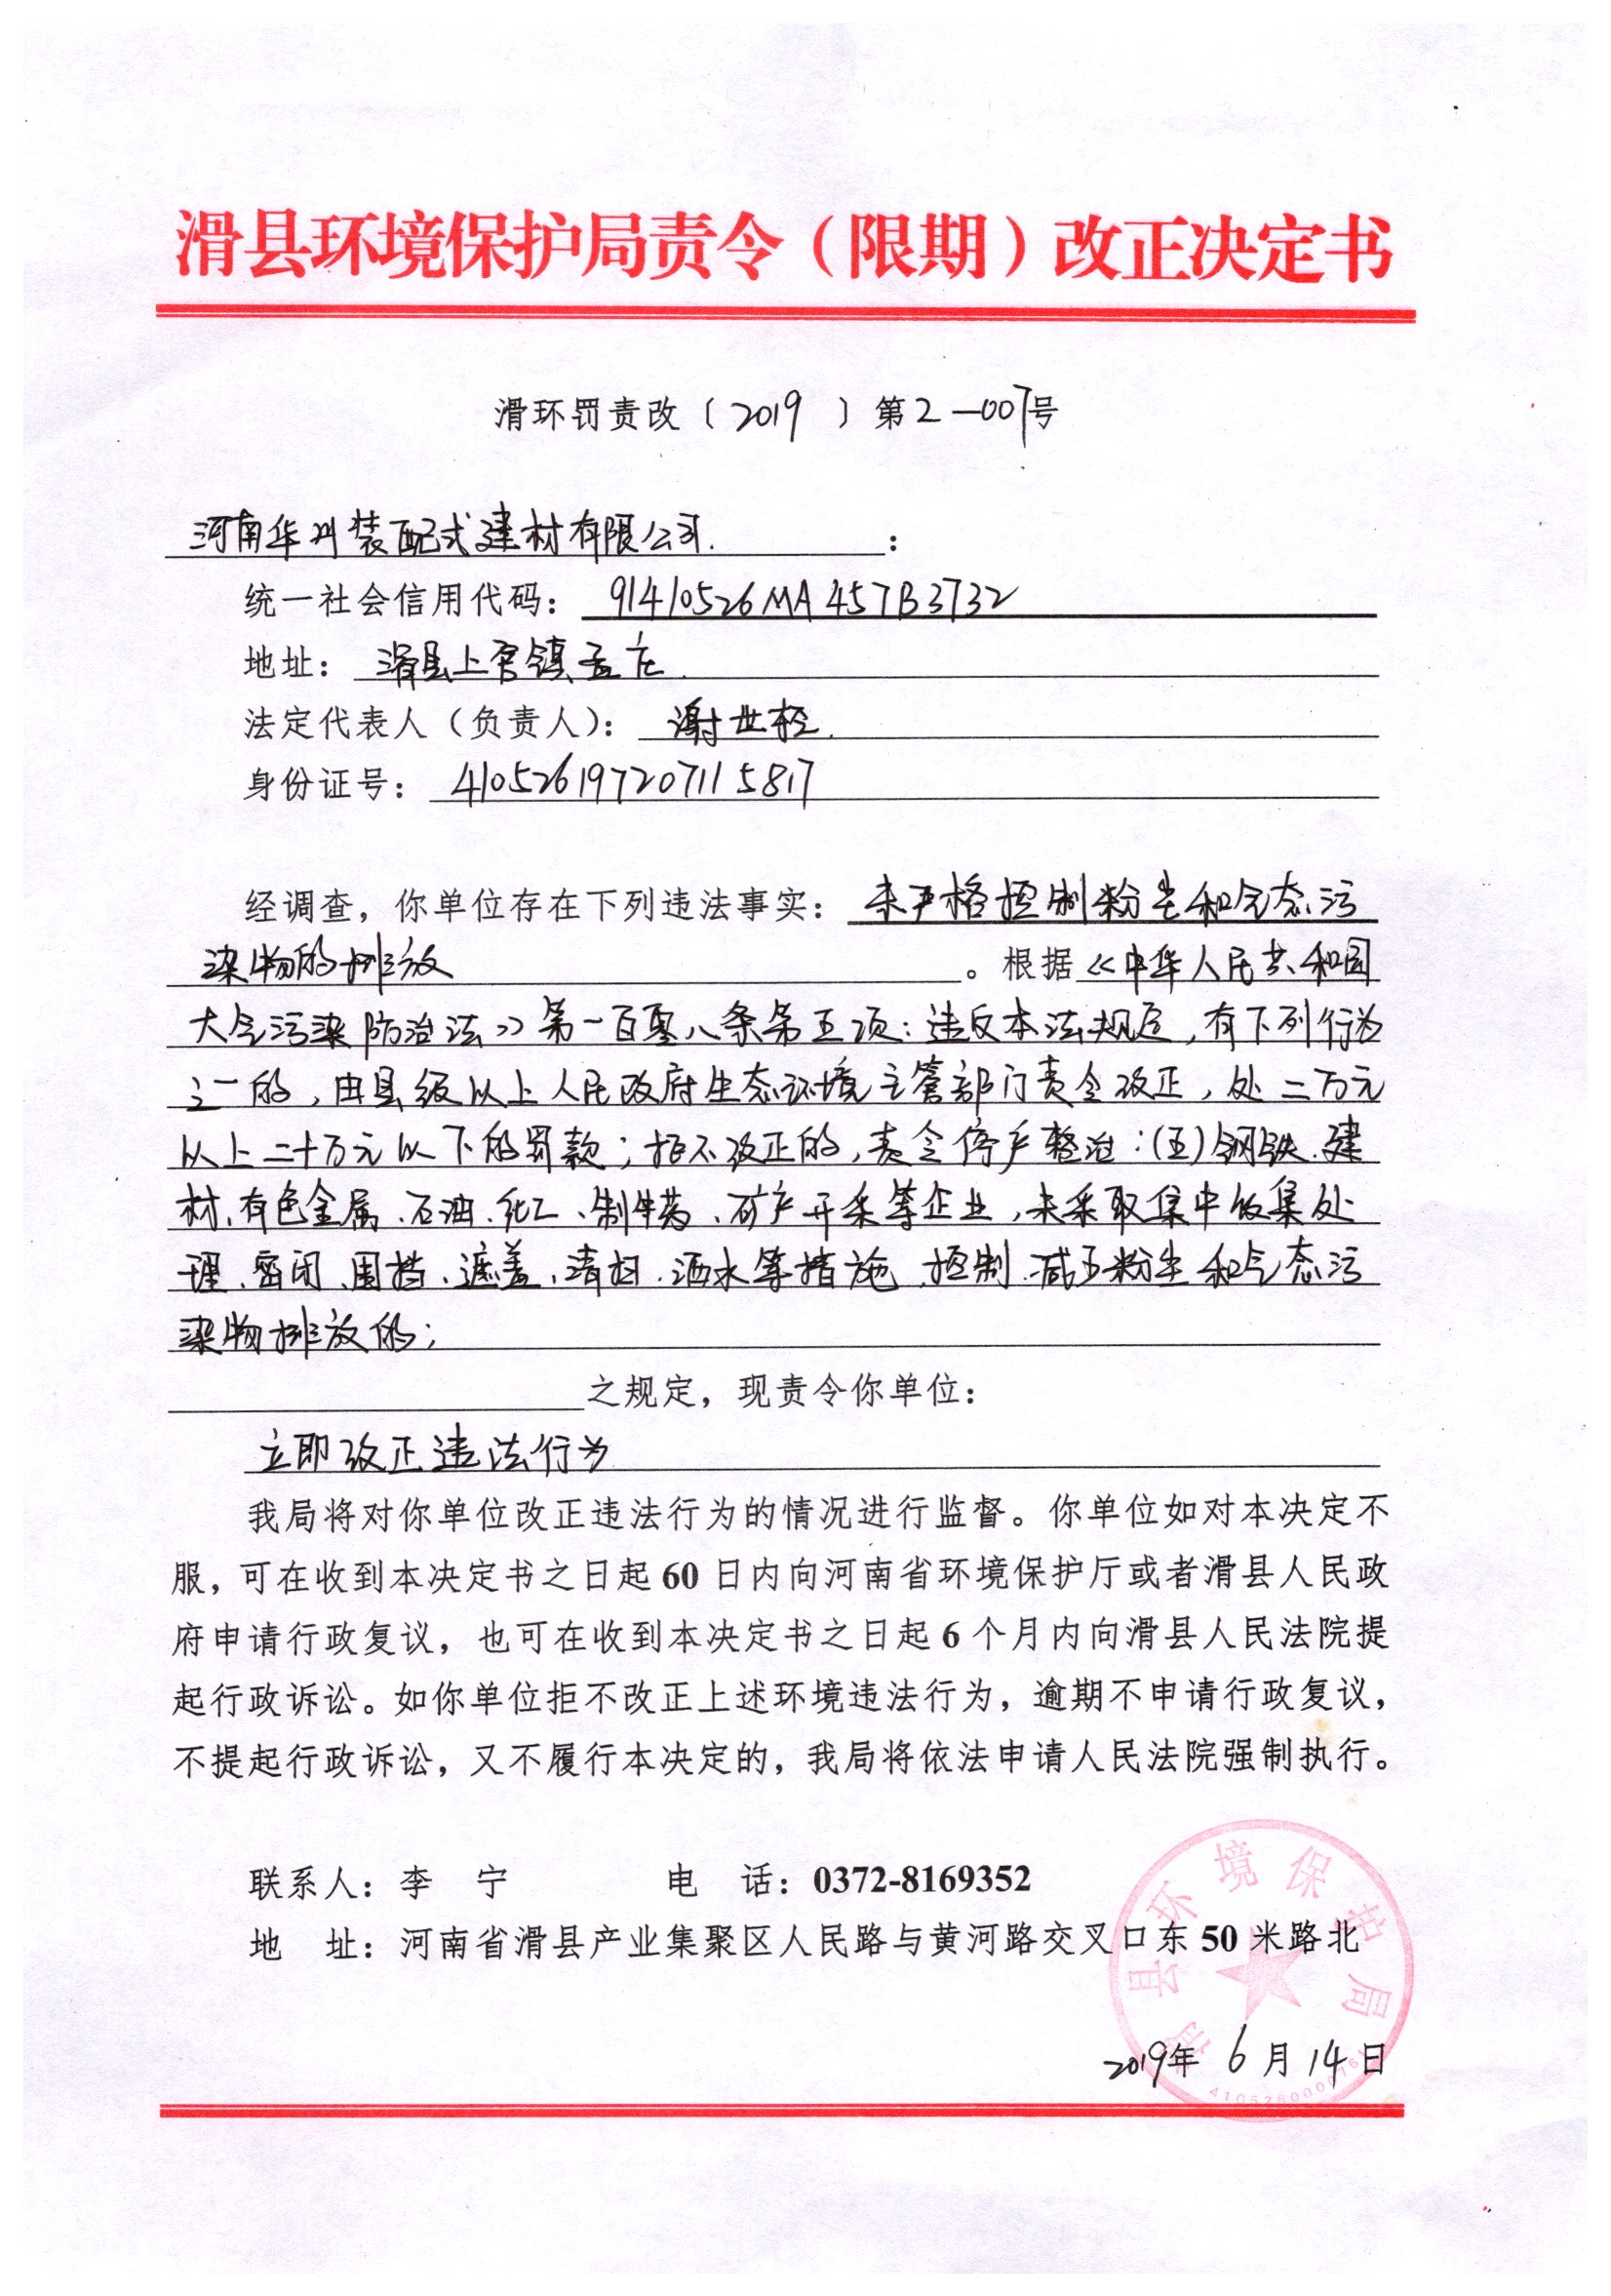 滑县环境保护局责令（限期）改正决定书
滑环罚责改〔2019〕第2-007号
河南华州装配式建材有限公司.：
统一社会信用代码：91410526MA457B3732
地址：滑县上官镇孟庄.
法定代表人（负责人）：谢世栓.
身份证号：410526197207115817
经调查，你单位存在下列违法事实：未严格控制粉尘和气态污
染物的排放。根据《中华人民共和国
大气污染防治法》第一百零八条第五项：违反本法规定，有下列行为
之一的，由县级以上人民政府生态环境主管部门责令改正，处二万元
以上二十万元以下的罚款；拒不改正的，责令停产整治：（五）钢铁、建
材、有色金属、石油、化工、制药、矿产开采等企业，未采取集中收集处
理、密闭、围挡、遮盖、清扫、洒水等措施，控制、减少粉尘和气态污
染物排放的；
之规定，现责令你单位：
立即改正违法行为
我局将对你单位改正违法行为的情况进行监督。你单位如对本决定不
服，可在收到本决定书之日起60日内向河南省环境保护厅或者滑县人民政
府申请行政复议，也可在收到本决定书之日起6个月内向滑县人民法院提
起行政诉讼。如你单位拒不改正上述环境违法行为，逾期不申请行政复议，
不提起行政诉讼，又不履行本决定的，我局将依法申请人民法院强制执行。
联系人：李　宁　　电　话：0372-8169352
地　址：河南省滑县产业集聚区人民路与黄河路交叉口东50米路北
滑县环境保护局
2019年6月14日